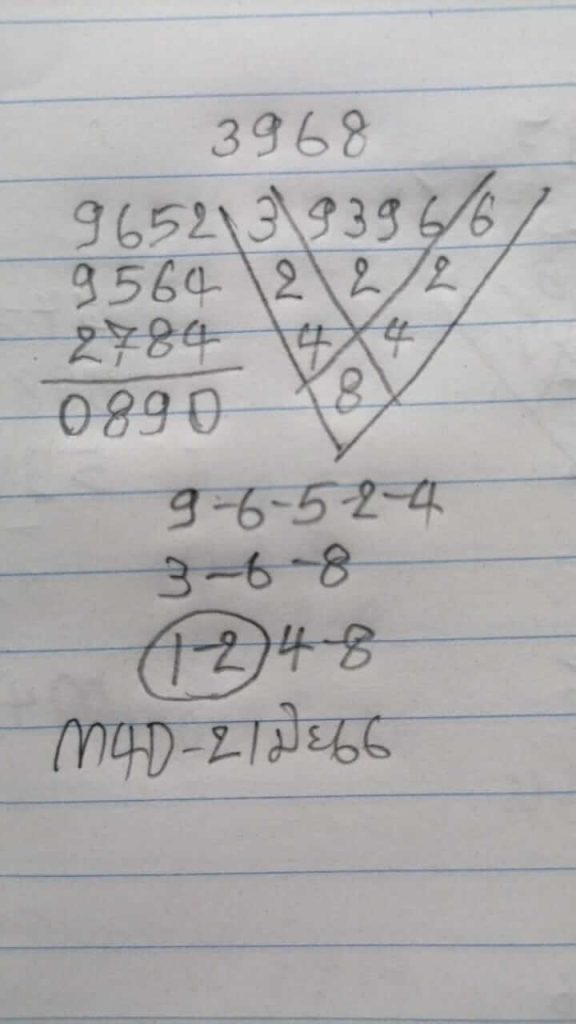 3968
9652 3 9396 6
9564 2 2 2
2784 4 4
0890 8
9-6-5-2-4
3-6-8
1-2 4-8
M4D-21มิย66